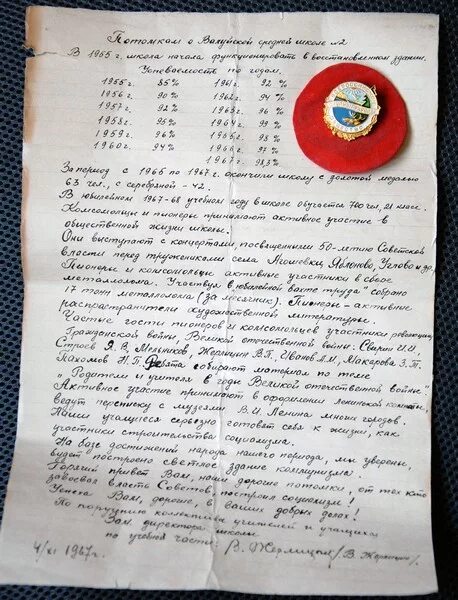 Потомкам о Валуйской средней школе №2
В 1955 г. школа начала функционировать в восстановленном здании.
Успеваемость по годам.
1955 г. 85% 1961 г. 92 %
1956 г. 90 % 1962 г. 94 %
1957 г. 92% 1963 г. 96 %
1958 г. 95% 1964 г. 99 %
1959 г. 96% 1965 г. 98 %
1960 г. 94% 1966 г. 97 %
1967 г. 98,3%
За период с 1965 по 1967 г. окончили школу с золотой медалью
63 чел., с серебряной - 42.
В юбилейном 1967-68 учебном году в школе обучается 780 уч., 21 класс.
Комсомольцы и пионеры принимают активное участие в
общественной жизни школы.
Они выступают с концертами, посвященными 50-летию Советской
власти перед тружениками села Яблоново, Углово и др.
Пионеры и комсомольцы активные участники в сборе
металлолома. Участвуя в юбилейной вахте труда" собрано
17 тонн металлолома (за месячник). Пионеры - активные
распространители художественной литературы.
Частые гости пионеров и комсомольцев участники революции,
Гражданской войны, Великой отечественной войны: И.И.
Строев Я.В. Мельников, Жерлицын В.П., Иванов Л.И., Макарова З.П.
Пахомов Н.П. Ребята собирают материал по теме
„Родители и учителя в годы Великой отечественной войны"
Активное участие принимают в оформлении ленинской комнаты,
ведут переписку с музеями В.И. Ленина многих городов.
Наши учащиеся серьезно готовят себя к жизни, как
участники строительства социализма.
На базе достижений народа нашего периода, мы уверены,
будет построено светлое здание коммунизма.
Горячий привет Вам, наши дорогие потомки, от тех кто
завоевал власть Советов, построил социализм!
Успеха Вам, дорогие, в ваших добрых делах!
По поручению коллектива учителей и учащихся
Зам. директора школы
по учебной части: В. Жерлицын /В. Жерлицын/
4/XI 1967г.